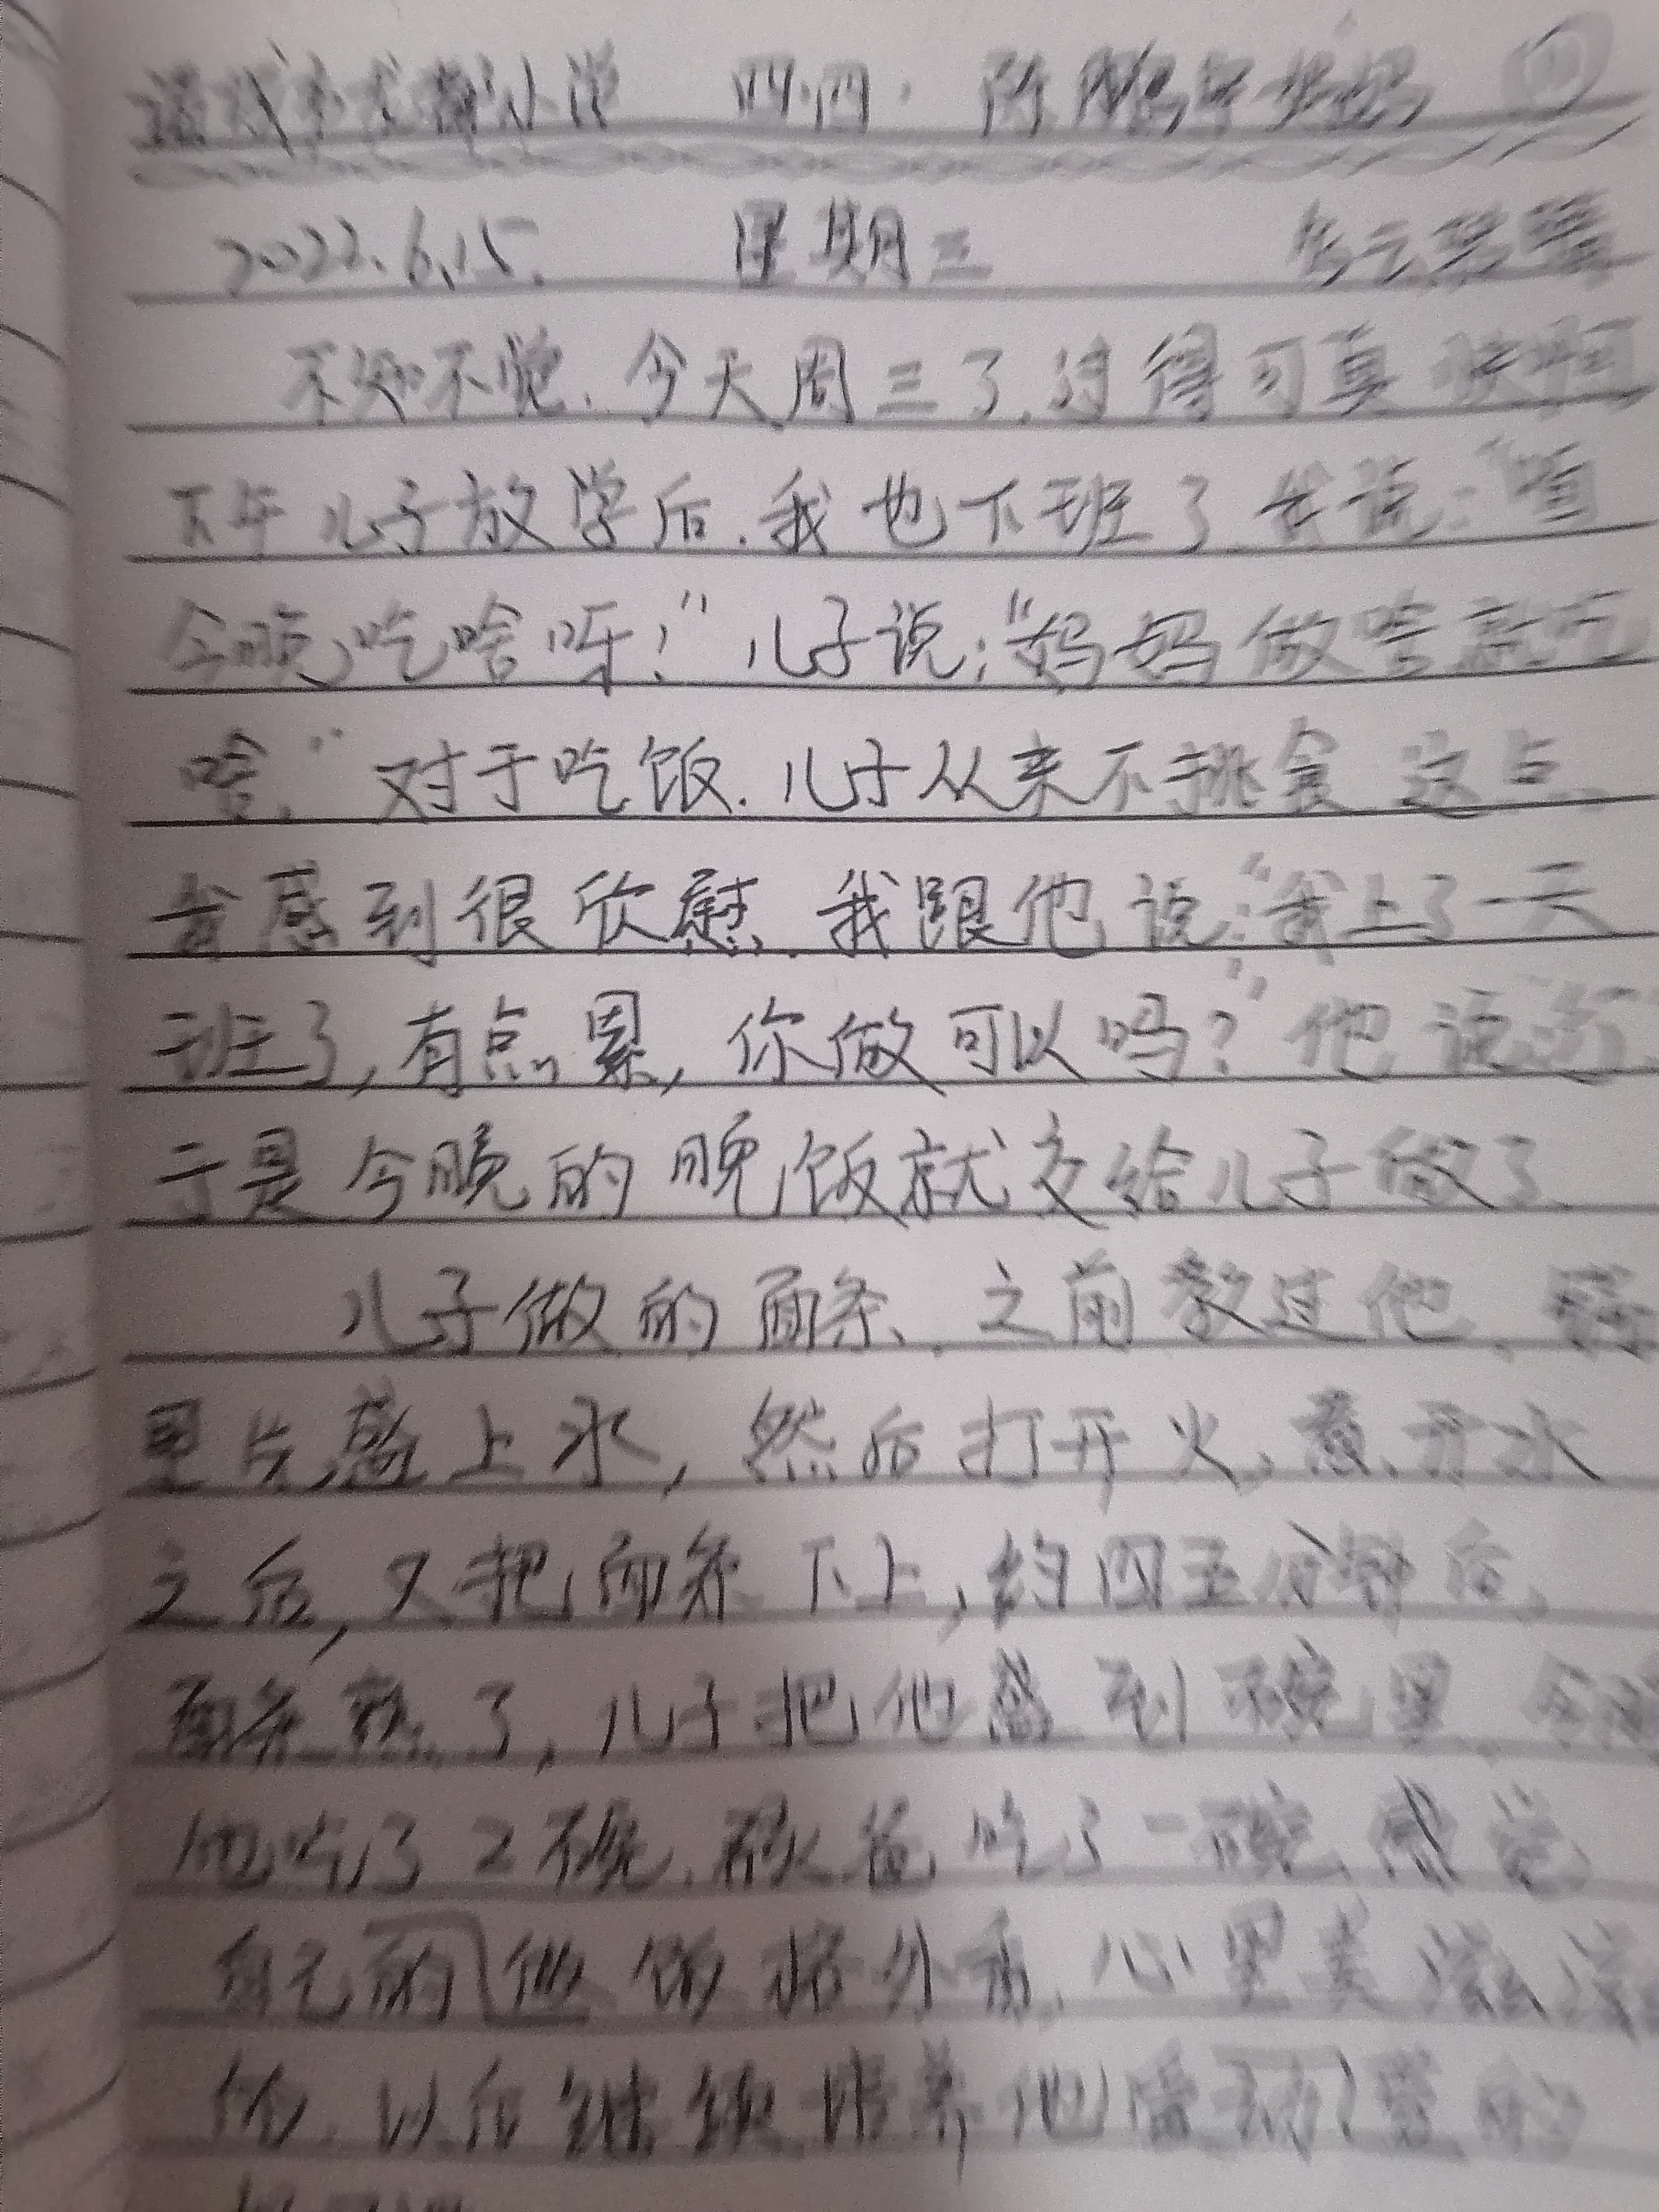 小学 四.四. 陈鹏 妈妈
2022.6.15. 星期三
不知不觉.今天周三了.过得可真快啊
下午儿子放学后.我也下班了.我说:"
今晚吃啥呀!"儿子说:"妈妈做啥就吃
啥."对于吃饭.儿子从来不挑食.这点
我感到很欣慰.我跟他说:"我上了一天
班了,有点累,你做可以吗?"他说
于是今晚的晚饭就交给儿子做了.
儿子做的面条.之前教过他.锅
里先盛上水,然后打开火,煮开水
之后,又把面条下上,约四五分钟后,
面条熟了,儿子把他盛到碗里.
他吃了2碗. 爸吃了一碗.感觉
自己的做饭格外香.心里美滋滋
的.以后继续培养他爱劳动的